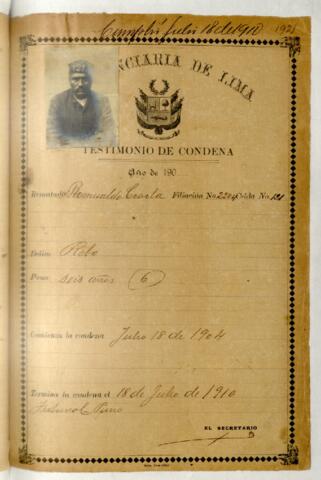 Cumplió Julio 18 de 1910 1921
NCIARIA DE LIMA
TESTIMONIO DE CONDENA
Año de 190
Rematado Romualdo Filiación No. Celda No. 121
Delito Robo
Pena seis años (6)
Comienza la condena Julio 18 de 1904
Termina la condena el 18 de Julio de 1910
Tribunal Puno
EL SECRETARIO